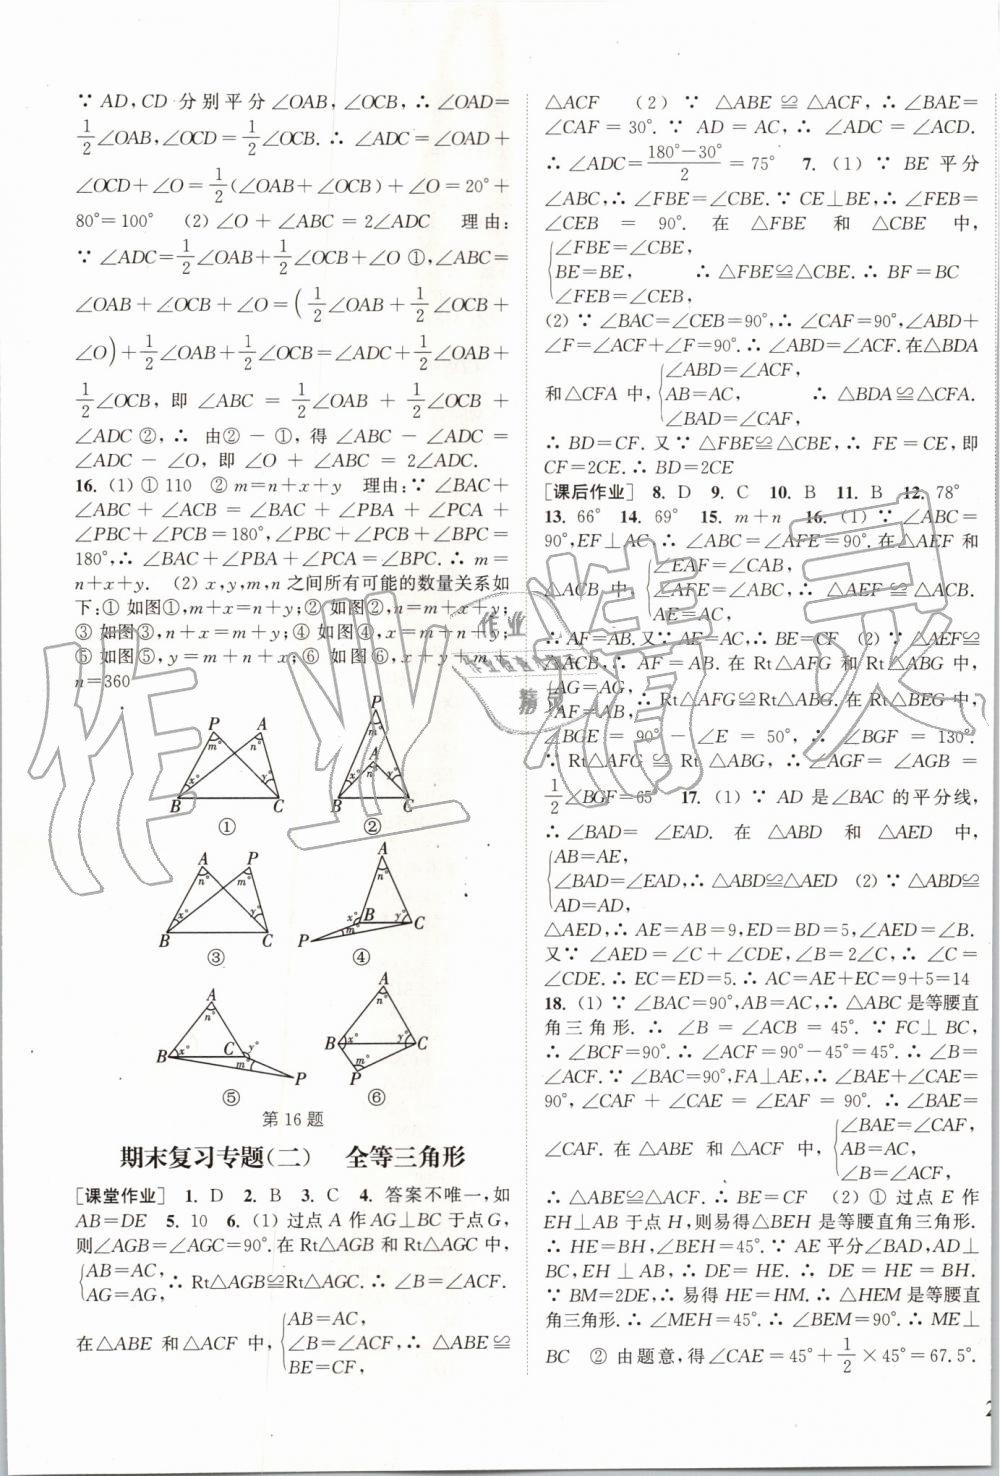 ∵ AD,CD 分别平分∠OAB,∠OCB,∴ ∠OAD=
1/2∠OAB,∠OCD=1/2∠OCB.∴ ∠ADC=∠OAD+
∠OCD+∠O=1/2(∠OAB+∠OCB)+∠O=20°+
80°=100° (2) ∠O+∠ABC=2∠ADC 理由:
∵ ∠ADC=1/2∠OAB+1/2∠OCB+∠O ①,∠ABC=
∠OAB+∠OCB+∠O=(1/2∠OAB+1/2∠OCB+
∠O)+1/2∠OAB+1/2∠OCB=∠ADC+1/2∠OAB+
1/2∠OCB,即∠ABC=1/2∠OAB+1/2∠OCB+
∠ADC ②,∴ 由②-①,得∠ABC-∠ADC=
∠ADC-∠O,即∠O+∠ABC=2∠ADC.
16. (1) ① 110 ② m=n+x+y 理由:∵ ∠BAC+
∠ABC+∠ACB=∠BAC+∠PBA+∠PCA+
∠PBC+∠PCB=180°,∠PBC+∠PCB+∠BPC=
180°,∴ ∠BAC+∠PBA+∠PCA=∠BPC.∴ m=
n+x+y. (2) x,y,m,n之间所有可能的数量关系如
下:① 如图①,m+x=n+y;② 如图②,n=x+m+y;
③ 如图③,n+x=m+y;④ 如图④,x=m+n+y;
⑤ 如图⑤,y=m+n+x;⑥ 如图⑥,x+y+m+
n=360
P A m° n° x° y° B C ①
P m° A n° x° y° B C ②
A P n° m° x° y° B C ③
A n° x° B y° C m° P ④
A n° x° B C y° m° P ⑤
A n° x° y° B C m° P ⑥
第16题
期末复习专题(二) 全等三角形
[课堂作业] 1. D 2. B 3. C 4. 答案不唯一,如
AB=DE 5. 10 6. (1) 过点A作AG⊥BC于点G,
则∠AGB=∠AGC=90°.在Rt△AGB和Rt△AGC中,
{AB=AC,
AG=AG, ∴ Rt△AGB≌Rt△AGC.∴ ∠B=∠ACF.
{AB=AC,
在△ABE和△ACF中, ∠B=∠ACF, ∴ △ABE≌
BE=CF,
△ACF (2) ∵ △ABE≌△ACF,∴ ∠BAE=
∠CAF=30°.∵ AD=AC,∴ ∠ADC=∠ACD.
∴ ∠ADC=(180°-30°)/2=75° 7. (1) ∵ BE平分
∠ABC,∴ ∠FBE=∠CBE.∵ CE⊥BE,∴ ∠FEB=
∠CEB=90°.在△FBE和△CBE中,
{∠FBE=∠CBE,
BE=BE, ∴ △FBE≌△CBE.∴ BF=BC
∠FEB=∠CEB,
(2) ∵ ∠BAC=∠CEB=90°,∴ ∠CAF=90°,∠ABD+
∠F=∠ACF+∠F=90°.∴ ∠ABD=∠ACF.在△BDA
{∠ABD=∠ACF,
和△CFA中, AB=AC, ∴ △BDA≌△CFA.
∠BAD=∠CAF,
∴ BD=CF.又∵ △FBE≌△CBE,∴ FE=CE,即
CF=2CE.∴ BD=2CE
[课后作业] 8. D 9. C 10. B 11. B 12. 78°
13. 66° 14. 69° 15. m+n 16. (1) ∵ ∠ABC=
90°,EF⊥AC,∴ ∠ABC=∠AFE=90°.在△AEF和
{∠EAF=∠CAB,
△ACB中, ∠AFE=∠ABC, ∴ △AEF≌△ACB.
AE=AC,
∴ AF=AB.又∵ AE=AC,∴ BE=CF (2) ∵ △AEF≌
△ACB,∴ AF=AB.在Rt△AFG和Rt△ABG中,
{AG=AG,
AF=AB, ∴ Rt△AFG≌Rt△ABG.在Rt△BEG中,
∠BGE=90°-∠E=50°,∴ ∠BGF=130°.
∵ Rt△AFG≌Rt△ABG,∴ ∠AGF=∠AGB=
1/2∠BGF=65° 17. (1) ∵ AD是∠BAC的平分线,
∴ ∠BAD=∠EAD.在△ABD和△AED中,
{AB=AE,
∠BAD=∠EAD,∴ △ABD≌△AED (2) ∵ △ABD≌
AD=AD,
△AED,∴ AE=AB=9,ED=BD=5,∠AED=∠B.
又∵ ∠AED=∠C+∠CDE,∠B=2∠C,∴ ∠C=
∠CDE.∴ EC=ED=5.∴ AC=AE+EC=9+5=14
18. (1) ∵ ∠BAC=90°,AB=AC,∴ △ABC是等腰直
角三角形.∴ ∠B=∠ACB=45°.∵ FC⊥BC,
∴ ∠BCF=90°.∴ ∠ACF=90°-45°=45°.∴ ∠B=
∠ACF.∵ ∠BAC=90°,FA⊥AE,∴ ∠BAE+∠CAE=
90°,∠CAF+∠CAE=∠EAF=90°.∴ ∠BAE=
{∠BAE=∠CAF,
∠CAF.在△ABE和△ACF中, AB=AC,
∠B=∠ACF,
∴ △ABE≌△ACF.∴ BE=CF (2) ① 过点E作
EH⊥AB于点H,则易得△BEH是等腰直角三角形.
∴ HE=BH,∠BEH=45°.∵ AE平分∠BAD,AD⊥
BC,EH⊥AB,∴ DE=HE.∴ DE=HE=BH.
∵ BM=2DE,∴ 易得HE=HM.∴ △HEM是等腰直
角三角形.∴ ∠MEH=45°.∴ ∠BEM=90°.∴ ME⊥
BC ② 由题意,得∠CAE=45°+1/2×45°=67.5°.
作业精灵
作业
精灵